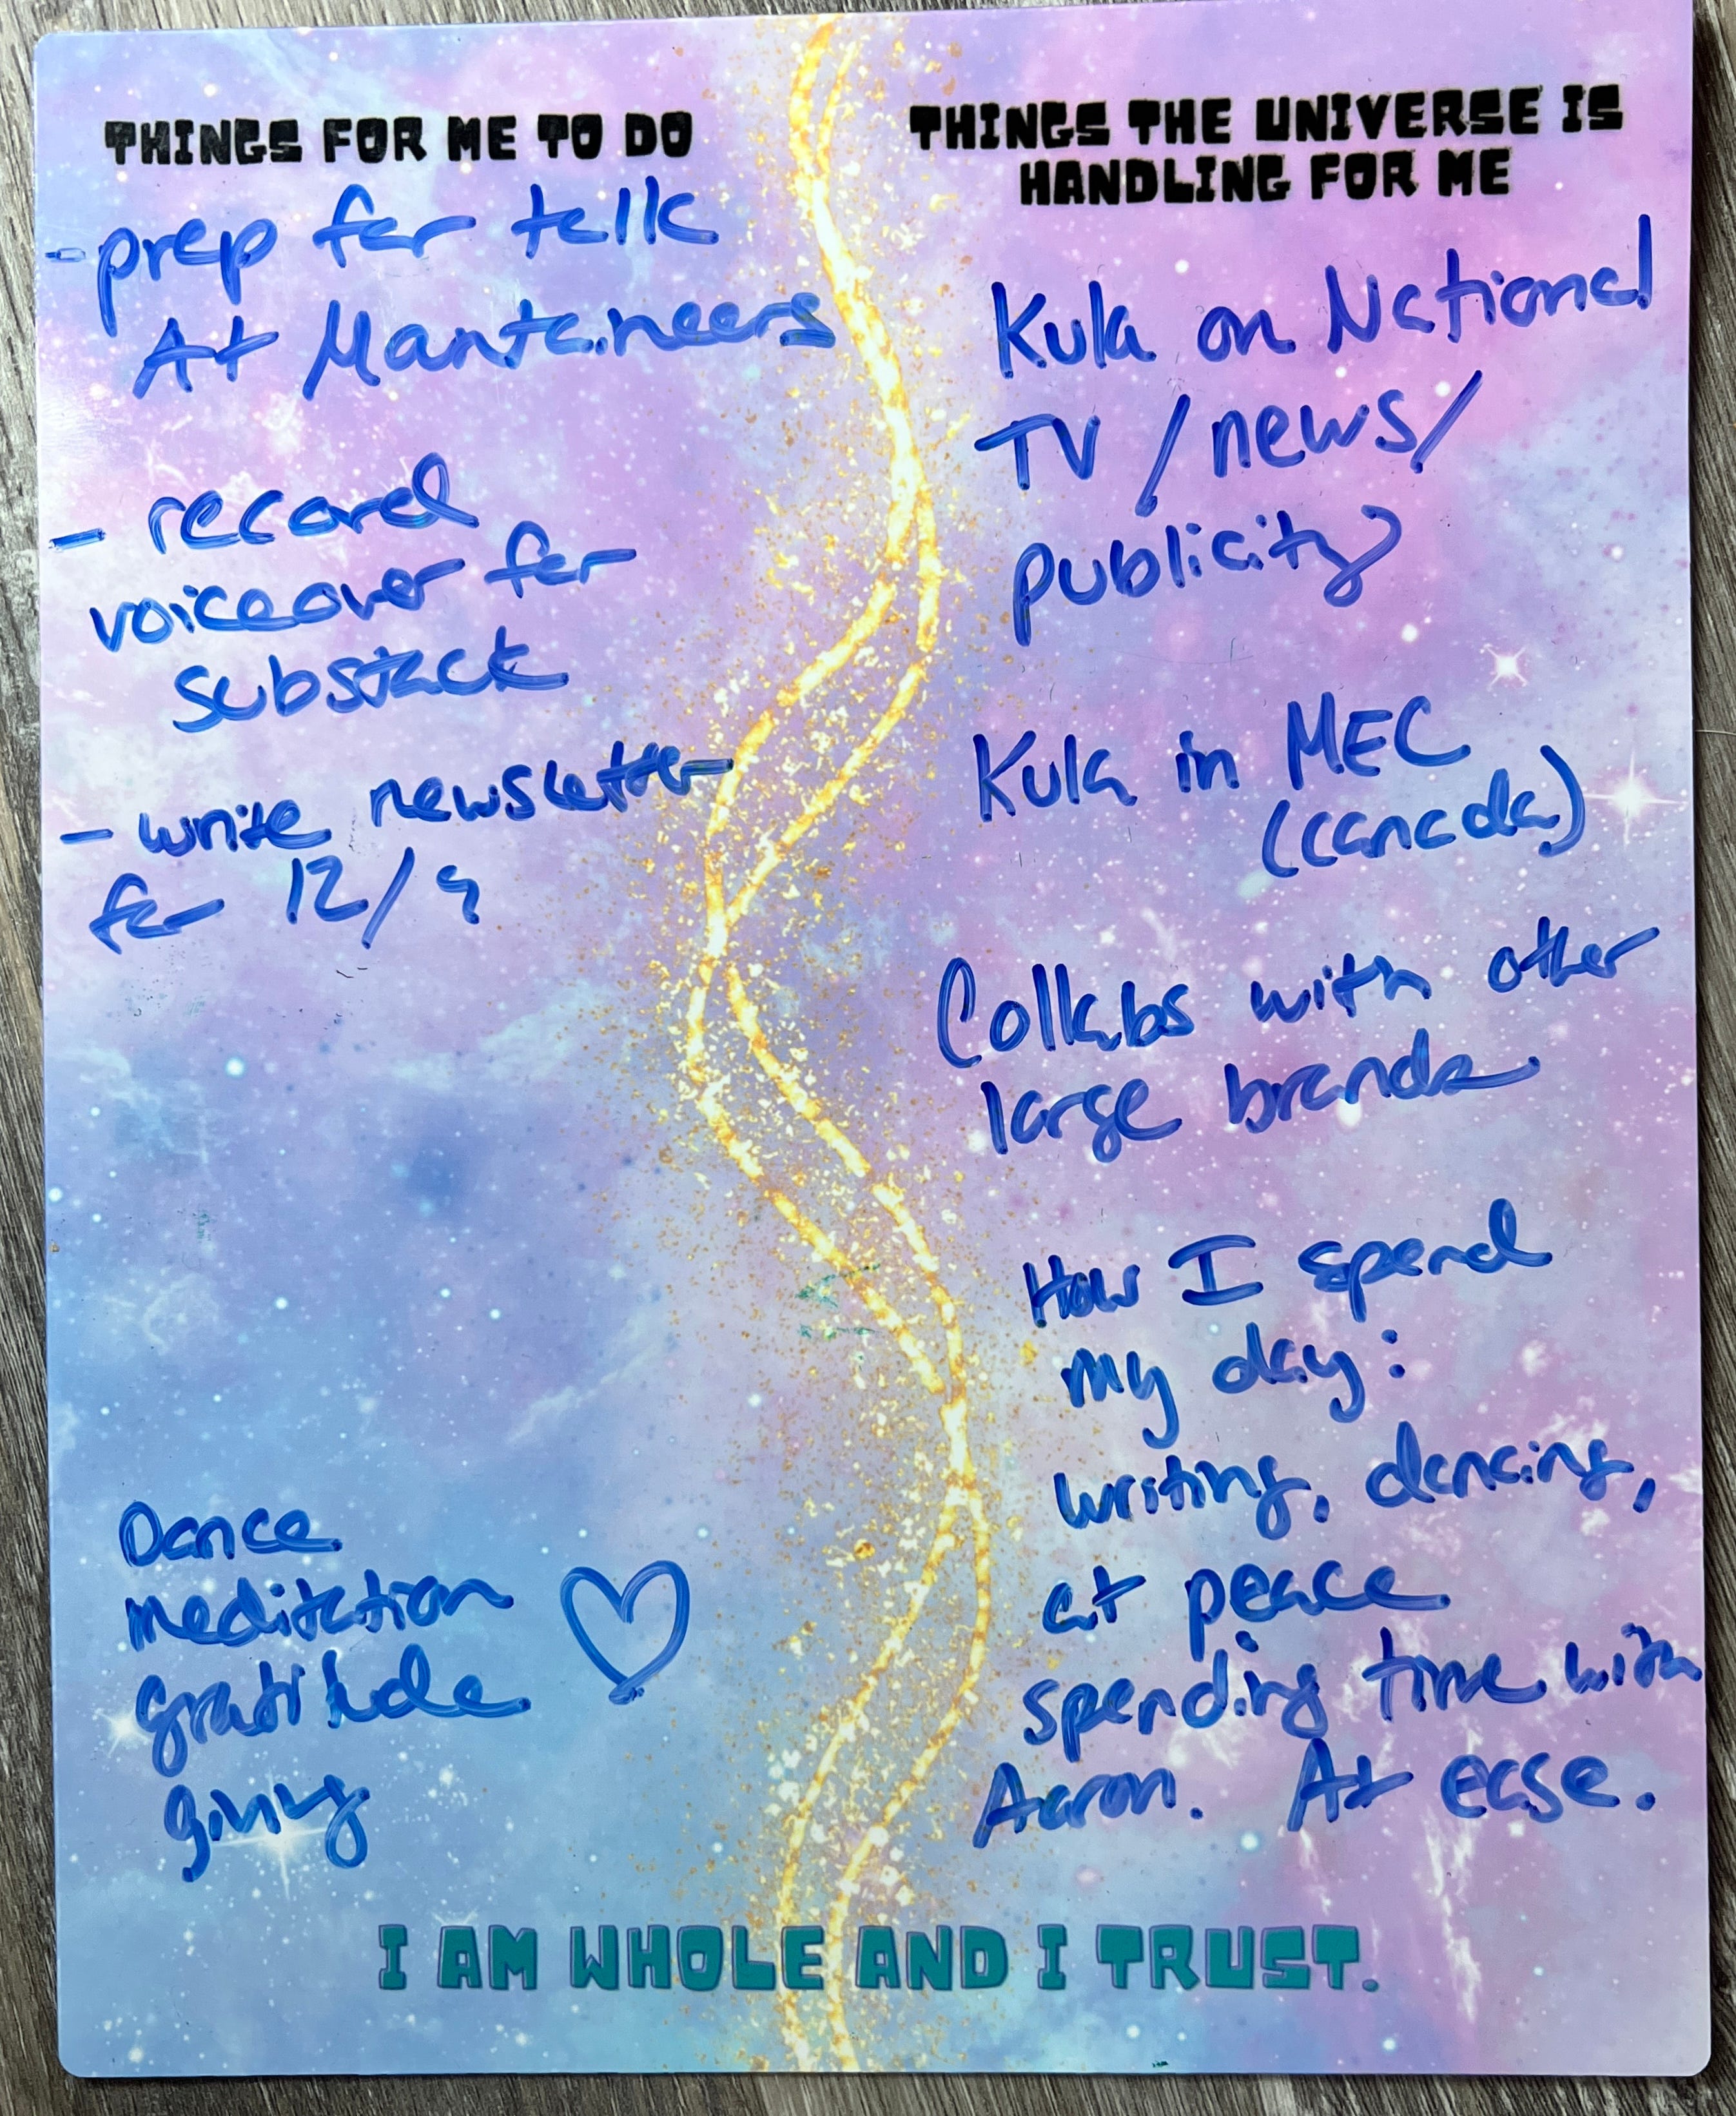 THINGS FOR ME TO DO
- prep for talk
At Mountaineers
- record
voiceover for
substack
- write newsletter
for 12/9
Dance
meditation
gratitude
giving
THINGS THE UNIVERSE IS
HANDLING FOR ME
Kula on National
TV / news /
publicity
Kula in MEC
(canada)
Collabs with other
large brands
How I spend
my day:
writing, dancing,
at peace
spending time with
Aaron. At ease.
I AM WHOLE AND I TRUST.